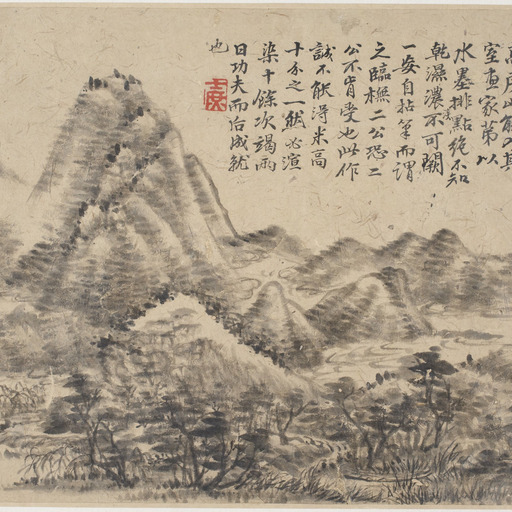 房山能入其
室画家第以
水墨排點絕不知
乾濕濃淡不可闕
一妄自拈筆而謂
之臨橅二公恐二
公不肯受也此作
誠不能得米高
十分之一然必渲
染十餘次竭兩
日功夫而成就
也